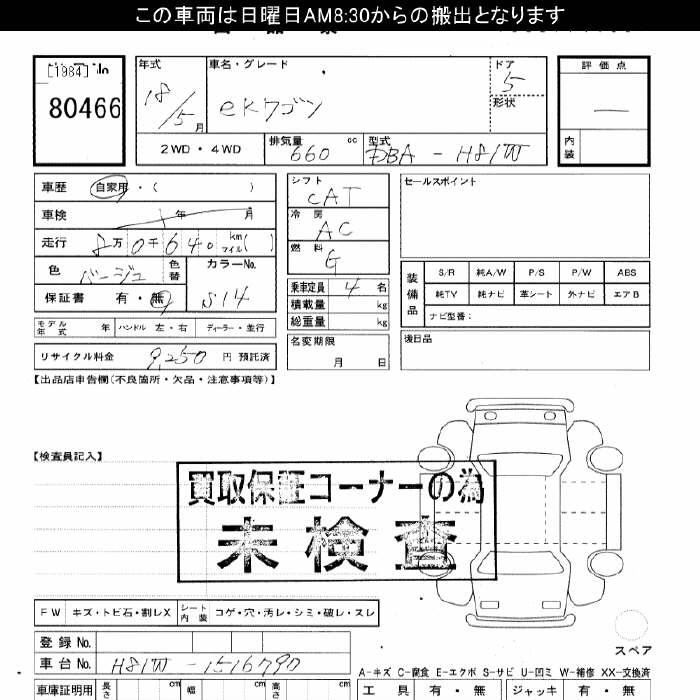 この車両は日曜日AM8:30からの搬出となります
[1984] No
80466
年式
18/5月
車名・グレード
eKワゴン
ドア
5
形状
評価点
—
内装
2WD・4WD
排気量
660 cc
型式
DBA - H81W
車歴 自家用・( )
車検 年 月
走行 8万0千640 km マイル( )
色 ベージュ 色替
カラーNo.
S14
保証書 有・無
シフト
CAT
冷房
AC
燃料
G
乗車定員 4 名
積載量 kg
総重量 kg
セールスポイント
装備品
S/R 純A/W P/S P/W ABS
純TV 純ナビ 革シート 外ナビ エアB
ナビ型番:
モデル年式 年 ハンドル 左・右 ディーラー・並行
リサイクル料金 9,250 円 預託済
名変期限
月 日
後日品
【出品店申告欄(不良箇所・欠品・注意事項等)】
【検査員記入】
買取保証コーナーの為
未検査
FW キズ・トビ石・割レX シート内装 コゲ・穴・汚レ・シミ・破レ・スレ
スペア
登録No.
車台No. H81W - 1516790
A-キズ C-腐食 E-エクボ S-サビ U-凹ミ W-補修 XX-交換済
車庫証明用 長さ cm 幅 cm 高さ cm
工具 有・無 ジャッキ 有・無